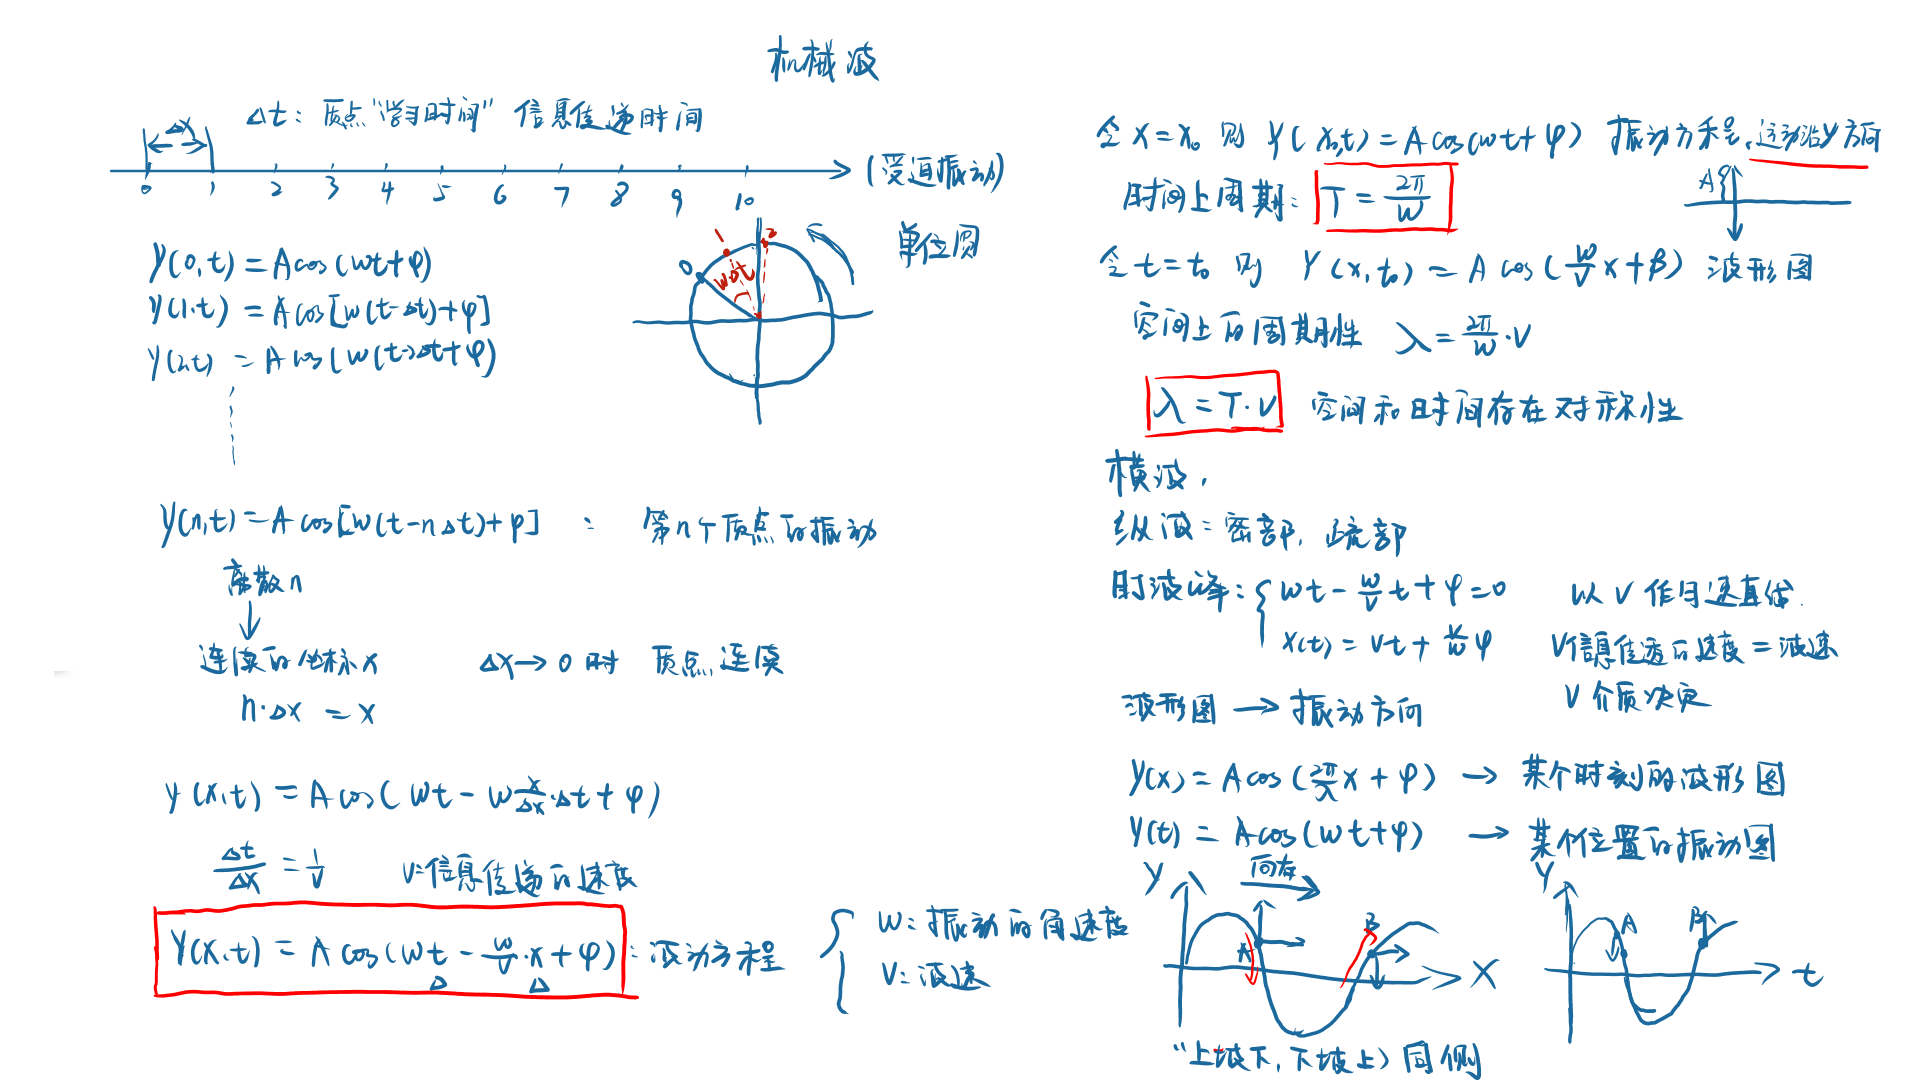 机械波
Δt: 质点"学习时间" 信息传递时间
Δx
0 1 2 3 4 5 6 7 8 9 10 (受迫振动)
Y(0,t) = A cos(wt+φ)
Y(1,t) = A cos[w(t-Δt)+φ]
Y(2,t) = A cos(w(t-2Δt+φ)
单位圆
0 1 2
wΔt
Y(n,t) = A cos[w(t-nΔt)+φ] : 第n个质点的振动
离散n
连续的坐标x Δx→0时 质点连续
n·Δx = x
Y(x,t) = A cos(wt - w x/Δx·Δt + φ)
Δt/Δx = 1/v v:信息传递的速度
Y(x,t) = A cos(wt - w/v·x + φ) : 波动方程
Δ Δ
w: 振动的角速度
v: 波速
令x=x₀ 则 Y(x₀,t) = A cos(wt+φ) 振动方程,运动沿y方向
时间上周期: T = 2π/w
A
令t=t₀ 则 Y(x,t₀) = A cos(w/v x+β) 波形图
空间上的周期性 λ = 2π/w·v
λ = T·v 空间和时间存在对称性
横波,
纵波: 密部, 疏部
wt - w/v t + φ = 0 以v作匀速直线.
x(t) = vt + v/w φ v信息传递的速度 = 波速
v介质决定
波形图 → 振动方向
Y(x) = A cos(2π/λ x + φ) → 某个时刻的波形图
Y(t) = A cos(wt+φ) → 某个位置的振动图
Y 向右 A B X
Y A B t
"上坡下, 下坡上) 同侧